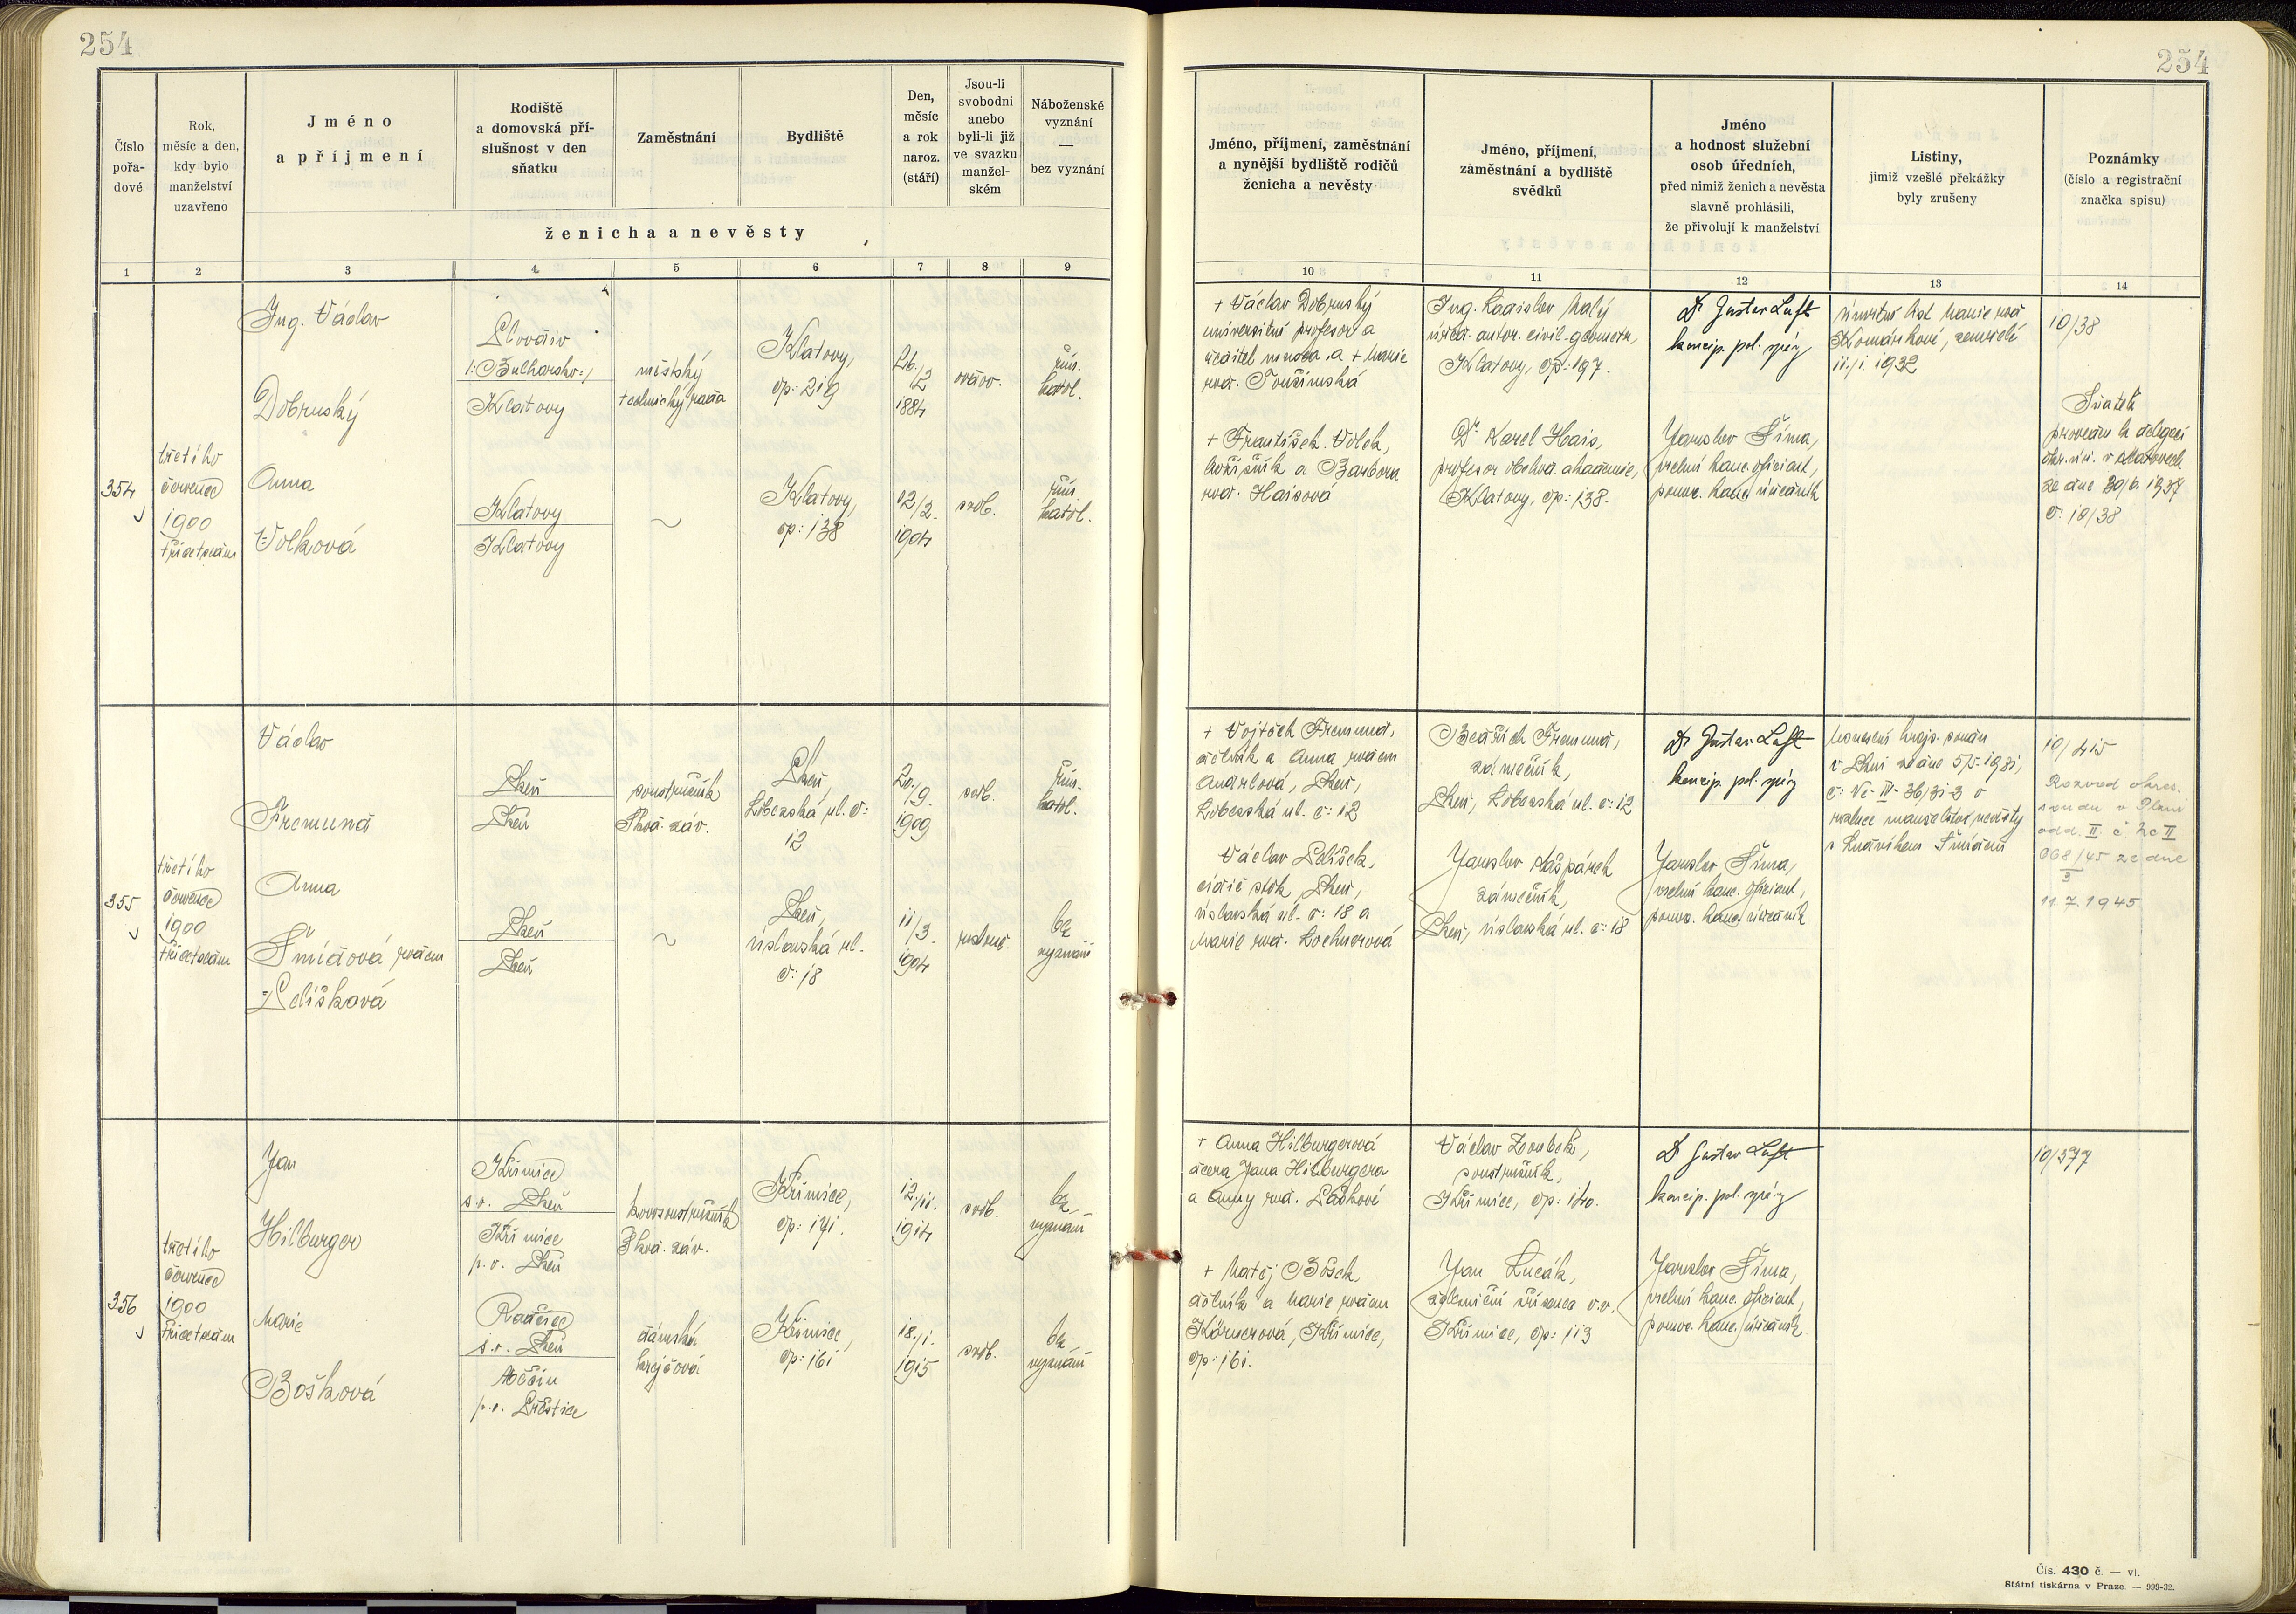 254
254
Číslo
pořa-
dové
Rok,
měsíc a den,
kdy bylo
manželství
uzavřeno
Jméno
a příjmení
Rodiště
a domovská pří-
slušnost v den
sňatku
Zaměstnání
Bydliště
Den,
měsíc
a rok
naroz.
(stáří)
Jsou-li
svobodni
anebo
byli-li již
ve svazku
manžel-
ském
Náboženské
vyznání
—
bez vyznání
ženicha a nevěsty
Jméno, příjmení, zaměstnání
a nynější bydliště rodičů
ženicha a nevěsty
Jméno, příjmení,
zaměstnání a bydliště
svědků
Jméno
a hodnost služební
osob úředních,
před nimiž ženich a nevěsta
slavně prohlásili,
že přivolují k manželství
Listiny,
jimiž vzešlé překážky
byly zrušeny
Poznámky
(číslo a registrační
značka spisu)
1 2 3 4 5 6 7 8 9 10 11 12 13 14
354
třetího
července
1900
třicetosm
Ing. Václav
Dobruský
Plovdiv
/:Bulharsko:/
Klatovy
městský
technický rada
Klatovy,
čp: 219
26./2
1884
vdov.
řím.
katol.
Anna
Volková
Klatovy
Klatovy
~
Klatovy,
čp: 138
12/2.
1904
svob.
řím.
katol.
+ Václav Dobruský
universitní profesor a
ředitel musea a + Marie
roz. Toužimská
+ František Volek,
kožišník a Barbora
roz. Haisová
Ing. Ladislav Malý
úřed. autor. civil. geometr,
Klatovy, čp: 197.
Dr. Karel Hais,
profesor obchod. akademie,
Klatovy, čp: 138.
Dr Gustav Luft
koncip. pol. správy
Jaroslav Šíma,
vrchní kanc. oficiant,
pomoc. kanc. úředník
úmrtní list Marie roz.
Komárkové, zemřelé
11./1. 1932
10/38
Sňatek
proveden k delegaci
okr. úř. v Klatovech
ze dne 30/6. 1937
č: 10/38
355
třetího
července
1900
třicetosm
Václav
Fremund
Plzeň
Plzeň
soustružník
Škod. záv.
Plzeň,
Lobezská ul. č:
12
20./9.
1909
svob.
řím.
katol.
Anna
Šmídová rozen
Pelíšková
Plzeň
Plzeň
~
Plzeň,
úslavská ul.
č: 18
11/3.
1904
rozlouč.
bez
vyznání
+ Vojtěch Fremund,
dělník a Anna rozen
Andrlová, Plzeň,
Lobezská ul. č: 12
Václav Pelíšek,
Plzeň,
úslavská ul. č: 18 a
Marie roz. Lochnerová
Bedřich Fremund,
zámečník,
Plzeň, Lobezská ul. č: 12
Jaroslav Kašpárek
zámečník,
Plzeň, úslavská ul. č: 18
Dr Gustav Luft
koncip. pol. správy
Jaroslav Šíma,
vrchní kanc. oficiant,
pomoc. kanc. úředník
Usnesení krajs. soudu
v Plzni ze dne 5/5. 1931,
rozluce manželství nevěsty
s Ludvíkem Šmídem
10/415
Rozvod okres.
soudu v Plzni
odd. II. č Nc II
968/45 ze dne
11.7.1945
356
třetího
července
1900
třicetosm
Jan
Hilburger
Křimice
s.o. Plzeň
Křimice
p.o. Plzeň
kovosoustružník
Škod. záv.
Křimice,
čp: 141.
12./11.
1914
svob.
bez
vyznání
Marie
Bošková
Radčice
s.o. Plzeň
p.o. Přeštice
dámská
krejčová
Křimice,
čp: 161
18./1.
1915
svob.
bez
vyznání
+ Anna Hilburgerová
dcera Jana Hilburgera
a Anny roz. Paškové
+ Matěj Bošek,
dělník a Marie rozen
Körnerová, Křimice,
čp: 161.
Václav Zoubek,
soustružník,
Křimice, čp: 140.
Jan Lucák,
železniční zřízenec v.v.
Křimice, čp: 113
Dr Gustav Luft
koncip. pol. správy
Jaroslav Šíma,
vrchní kanc. oficiant,
pomoc. kanc. úředník
10/577
Čís. 430 č. — vl.
Státní tiskárna v Praze. — 999-32.